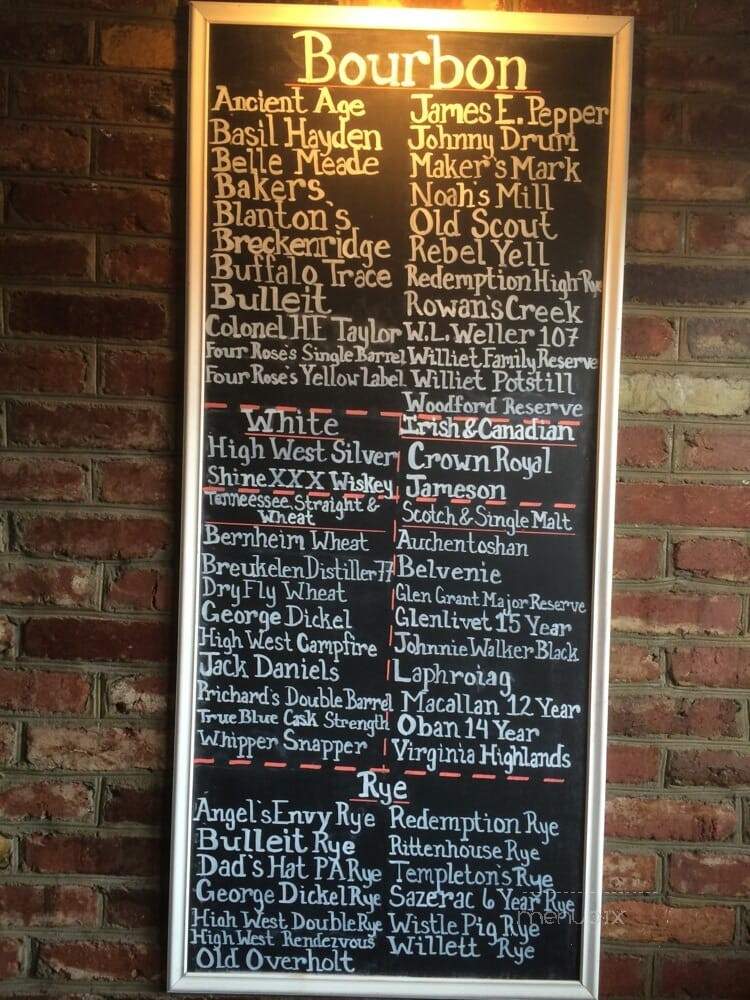 Bourbon
Ancient Age
Basil Hayden
Belle Meade
Bakers
Blanton's
Breckenridge
Buffalo Trace
Bulleit
Colonel HE Taylor
Four Rose's Single Barrel
Four Rose's Yellow Label
James E. Pepper
Johnny Drum
Maker's Mark
Noah's Mill
Old Scout
Rebel Yell
Redemption High Rye
Rowan's Creek
W.L. Weller 107
Williet Family Reserve
Williet Potstill
Woodford Reserve
White
High West Silver
Shine XXX Wiskey
Irish & Canadian
Crown Royal
Jameson
Tenneessee, Straight &
Wheat
Bernheim Wheat
Breukelen Distiller 77
Dry Fly Wheat
George Dickel
High West Campfire
Jack Daniels
Prichard's Double Barrel
True Blue Cask Strength
Whipper Snapper
Scotch & Single Malt
Auchentoshan
Belvenie
Glen Grant Major Reserve
Glenlivet 15 Year
Johnnie Walker Black
Laphroiag
Macallan 12 Year
Oban 14 Year
Virginia Highlands
Rye
Angel's Envy Rye
Bulleit Rye
Dad's Hat PA Rye
George Dickel Rye
High West Double Rye
High West Rendezvous
Old Overholt
Redemption Rye
Rittenhouse Rye
Templeton's Rye
Sazerac 6 Year Rye
Wistle Pig Rye
Willett Rye
menupix